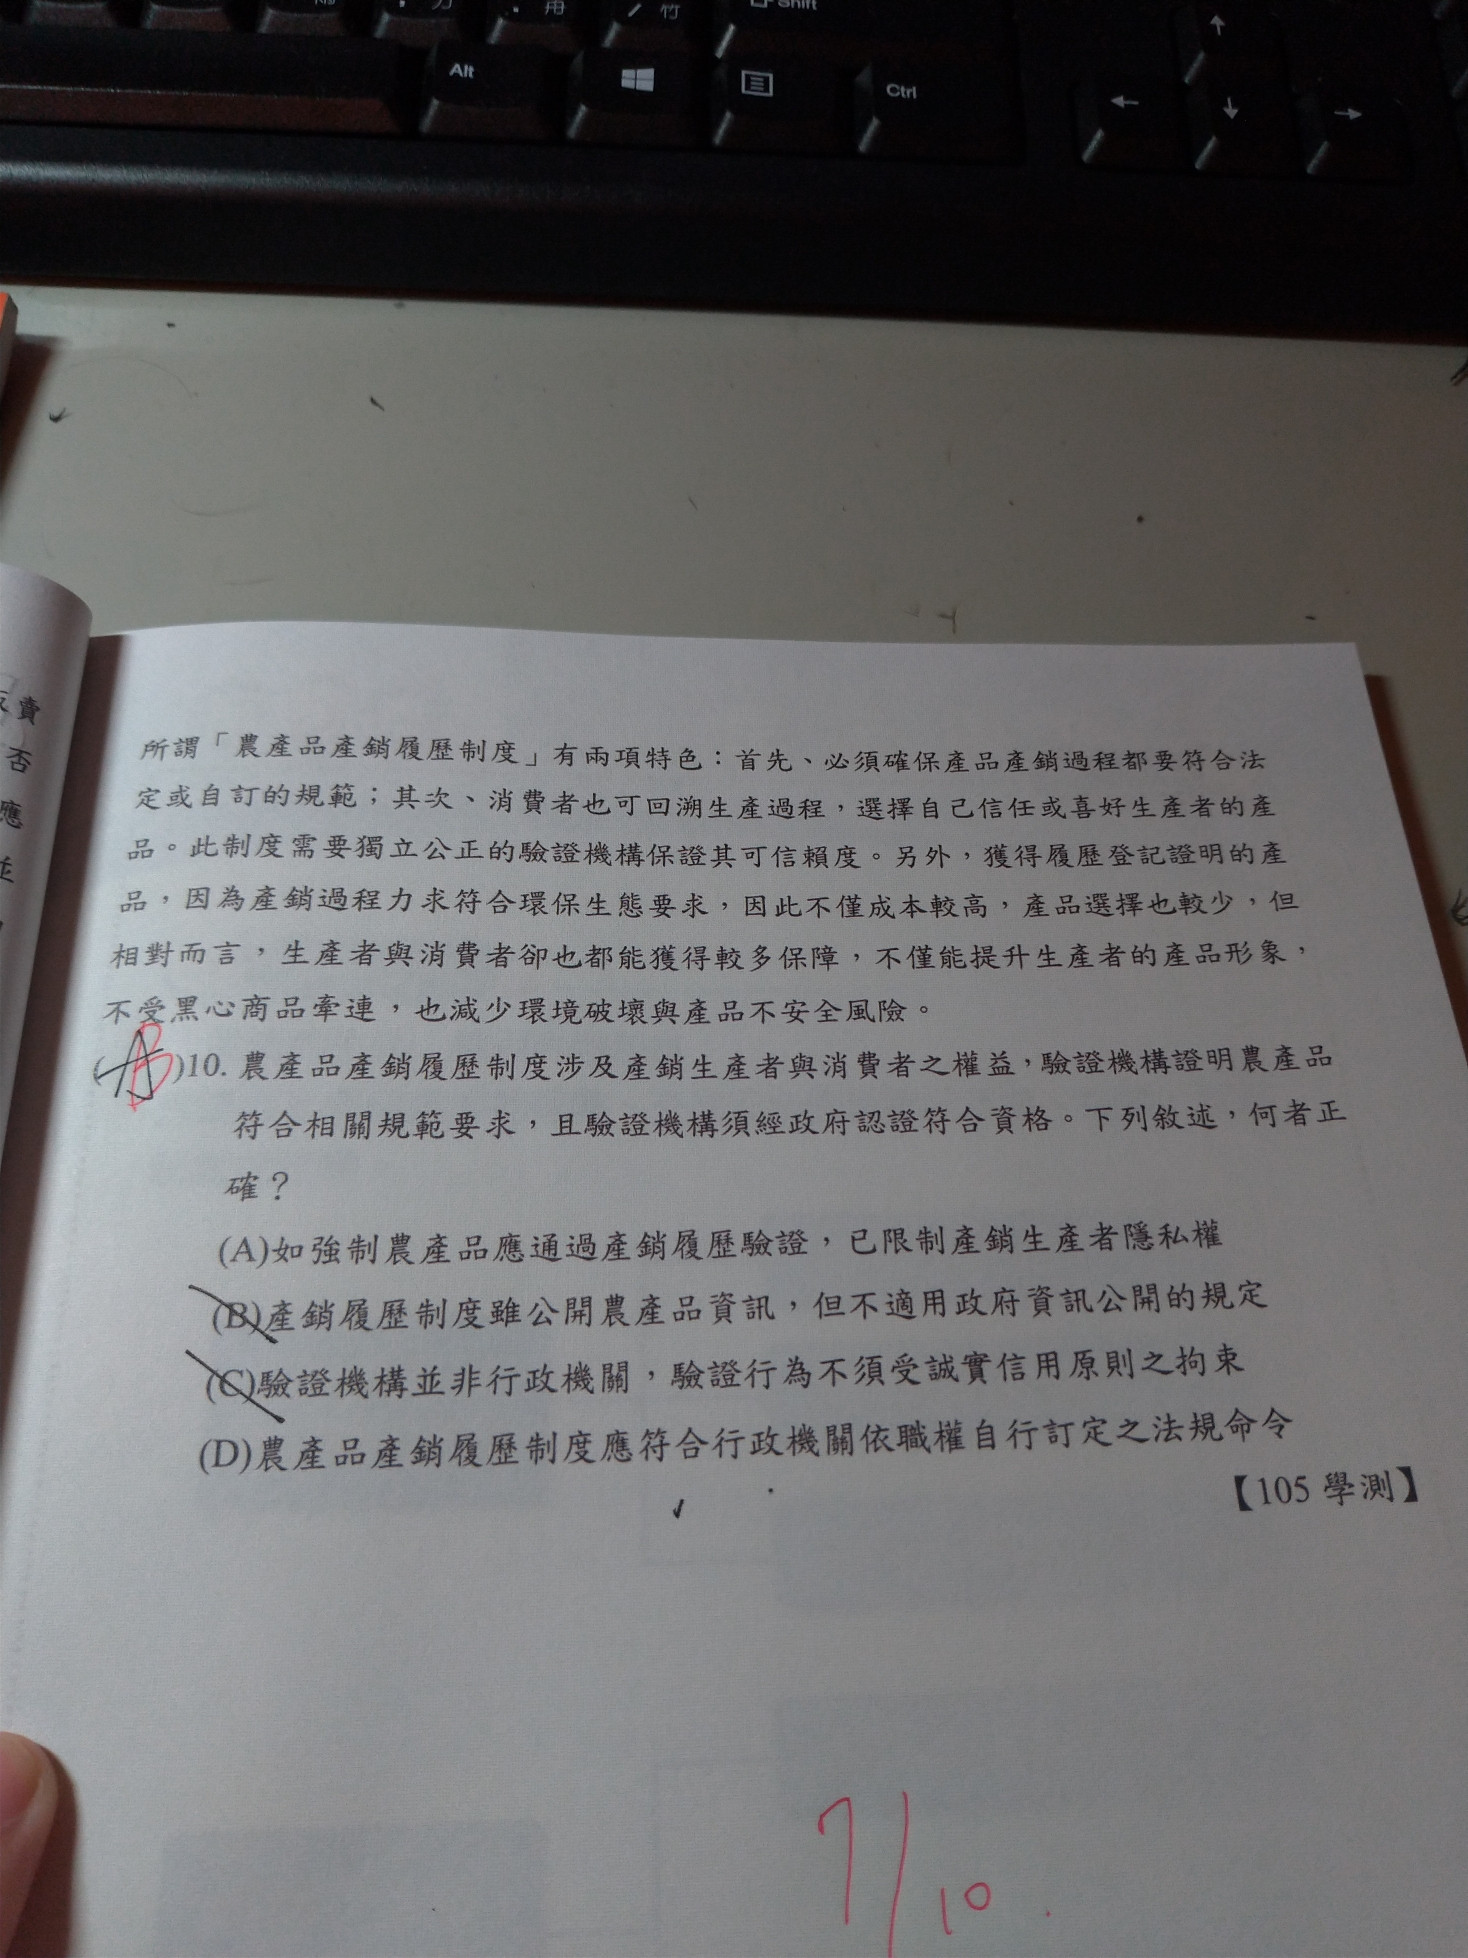 Shift
竹
Alt
Ctrl
賣
否
應
所謂「農產品產銷履歷制度」有兩項特色：首先、必須確保產品產銷過程都要符合法
定或自訂的規範；其次、消費者也可回溯生產過程，選擇自己信任或喜好生產者的產
品。此制度需要獨立公正的驗證機構保證其可信賴度。另外，獲得履歷登記證明的產
品，因為產銷過程力求符合環保生態要求，因此不僅成本較高，產品選擇也較少，但
相對而言，生產者與消費者卻也都能獲得較多保障，不僅能提升生產者的產品形象，
不受黑心商品牽連，也減少環境破壞與產品不安全風險。
(B)10. 農產品產銷履歷制度涉及產銷生產者與消費者之權益，驗證機構證明農產品
符合相關規範要求，且驗證機構須經政府認證符合資格。下列敘述，何者正
確？
(A)如強制農產品應通過產銷履歷驗證，已限制產銷生產者隱私權
(B)產銷履歷制度雖公開農產品資訊，但不適用政府資訊公開的規定
(C)驗證機構並非行政機關，驗證行為不須受誠實信用原則之拘束
(D)農產品產銷履歷制度應符合行政機關依職權自行訂定之法規命令
【105 學測】
7/10